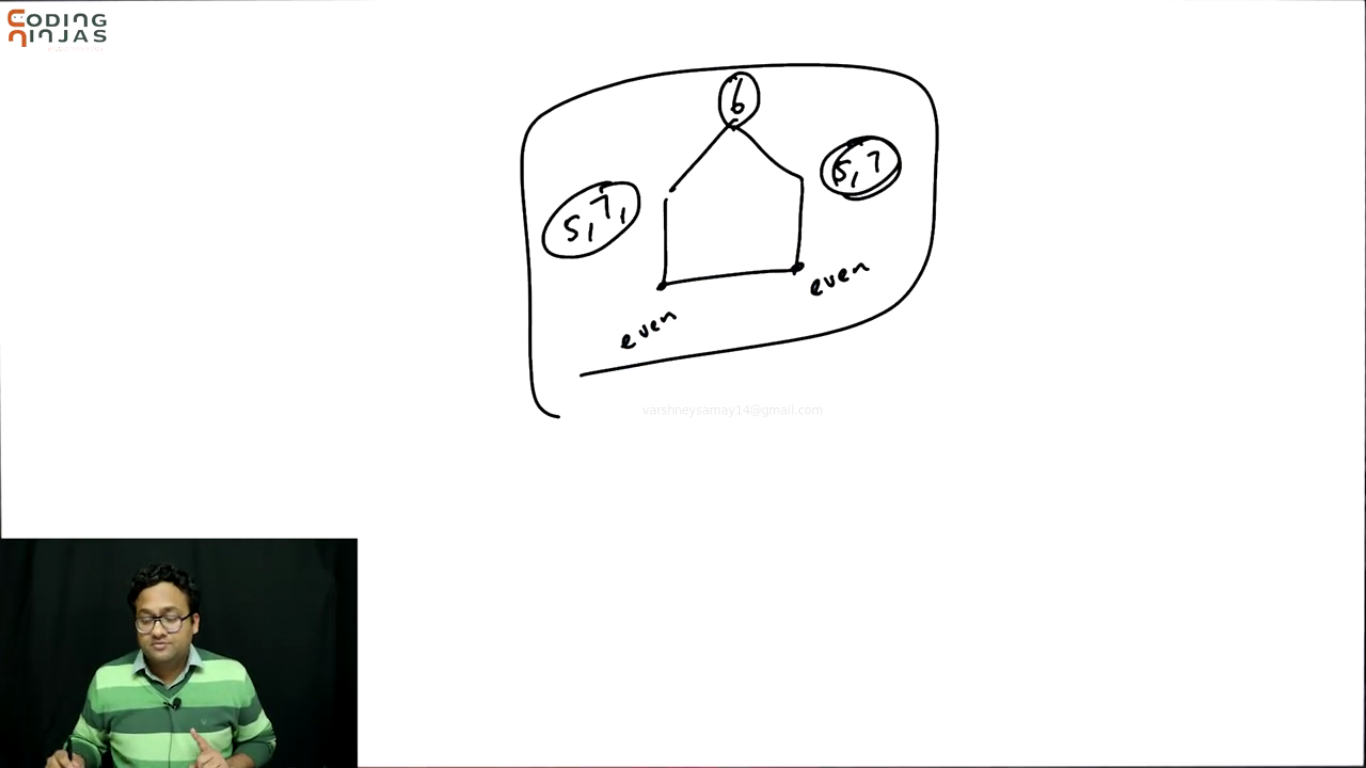 CODING
NINJAS
6
5, 7
5, 7,
even
even
varshneysamay14@gmail.com